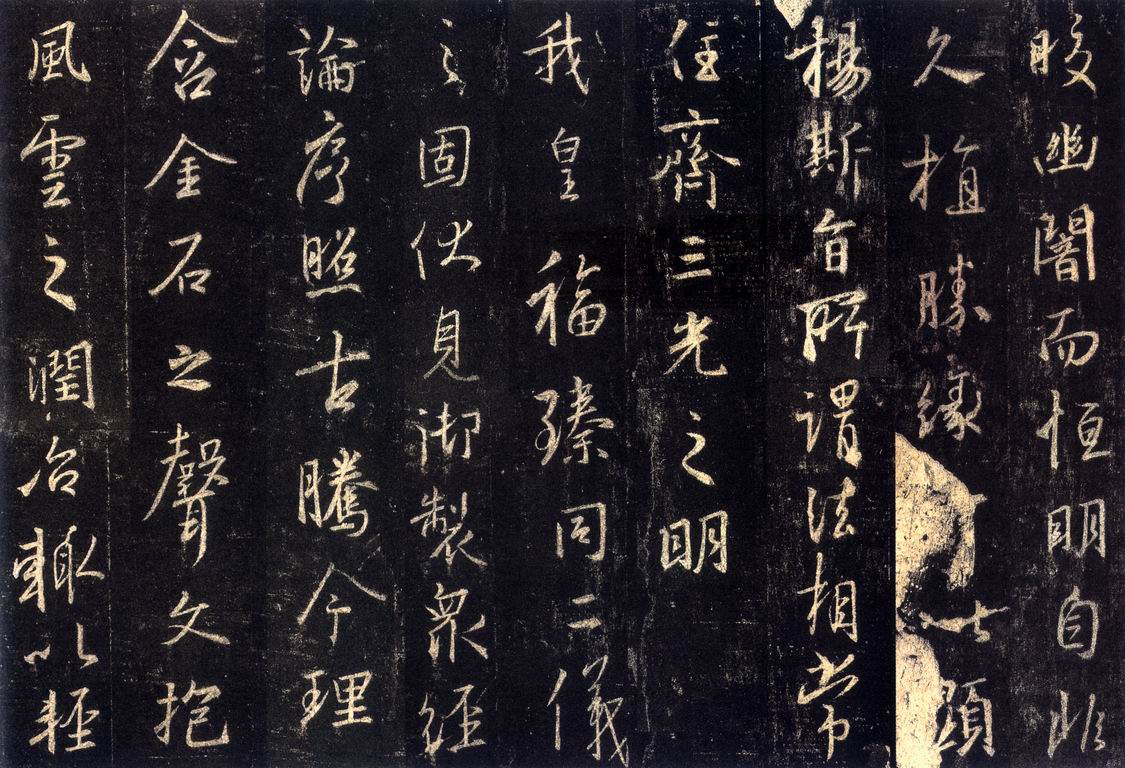 晈幽闇而恒明自非
久植勝緣以顯
楊斯旨所謂法相常
住齊三光之明
我皇福臻同二儀
之固伏見御製衆經
論序照古騰今理
含金石之聲文抱
風雲之潤治輒以輕